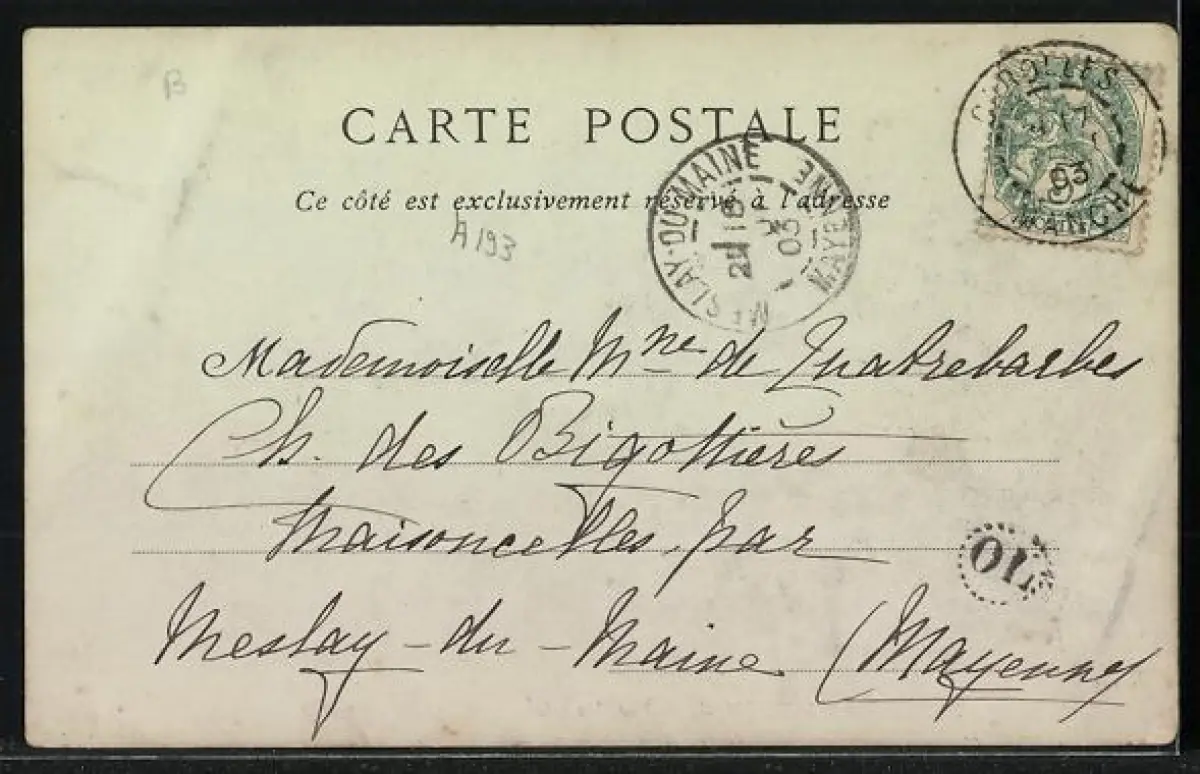 B
CARTE POSTALE
Ce côté est exclusivement réservé à l'adresse
A 193
CAROLLES
03
MANCHE
MESLAY-DU-MAINE
18
03
MAYENNE
5
Mademoiselle Mne de Quatrebarbes
Ch. des Bigottières
Maisoncelles, par
Meslay-du-Maine (Mayenne)
OL